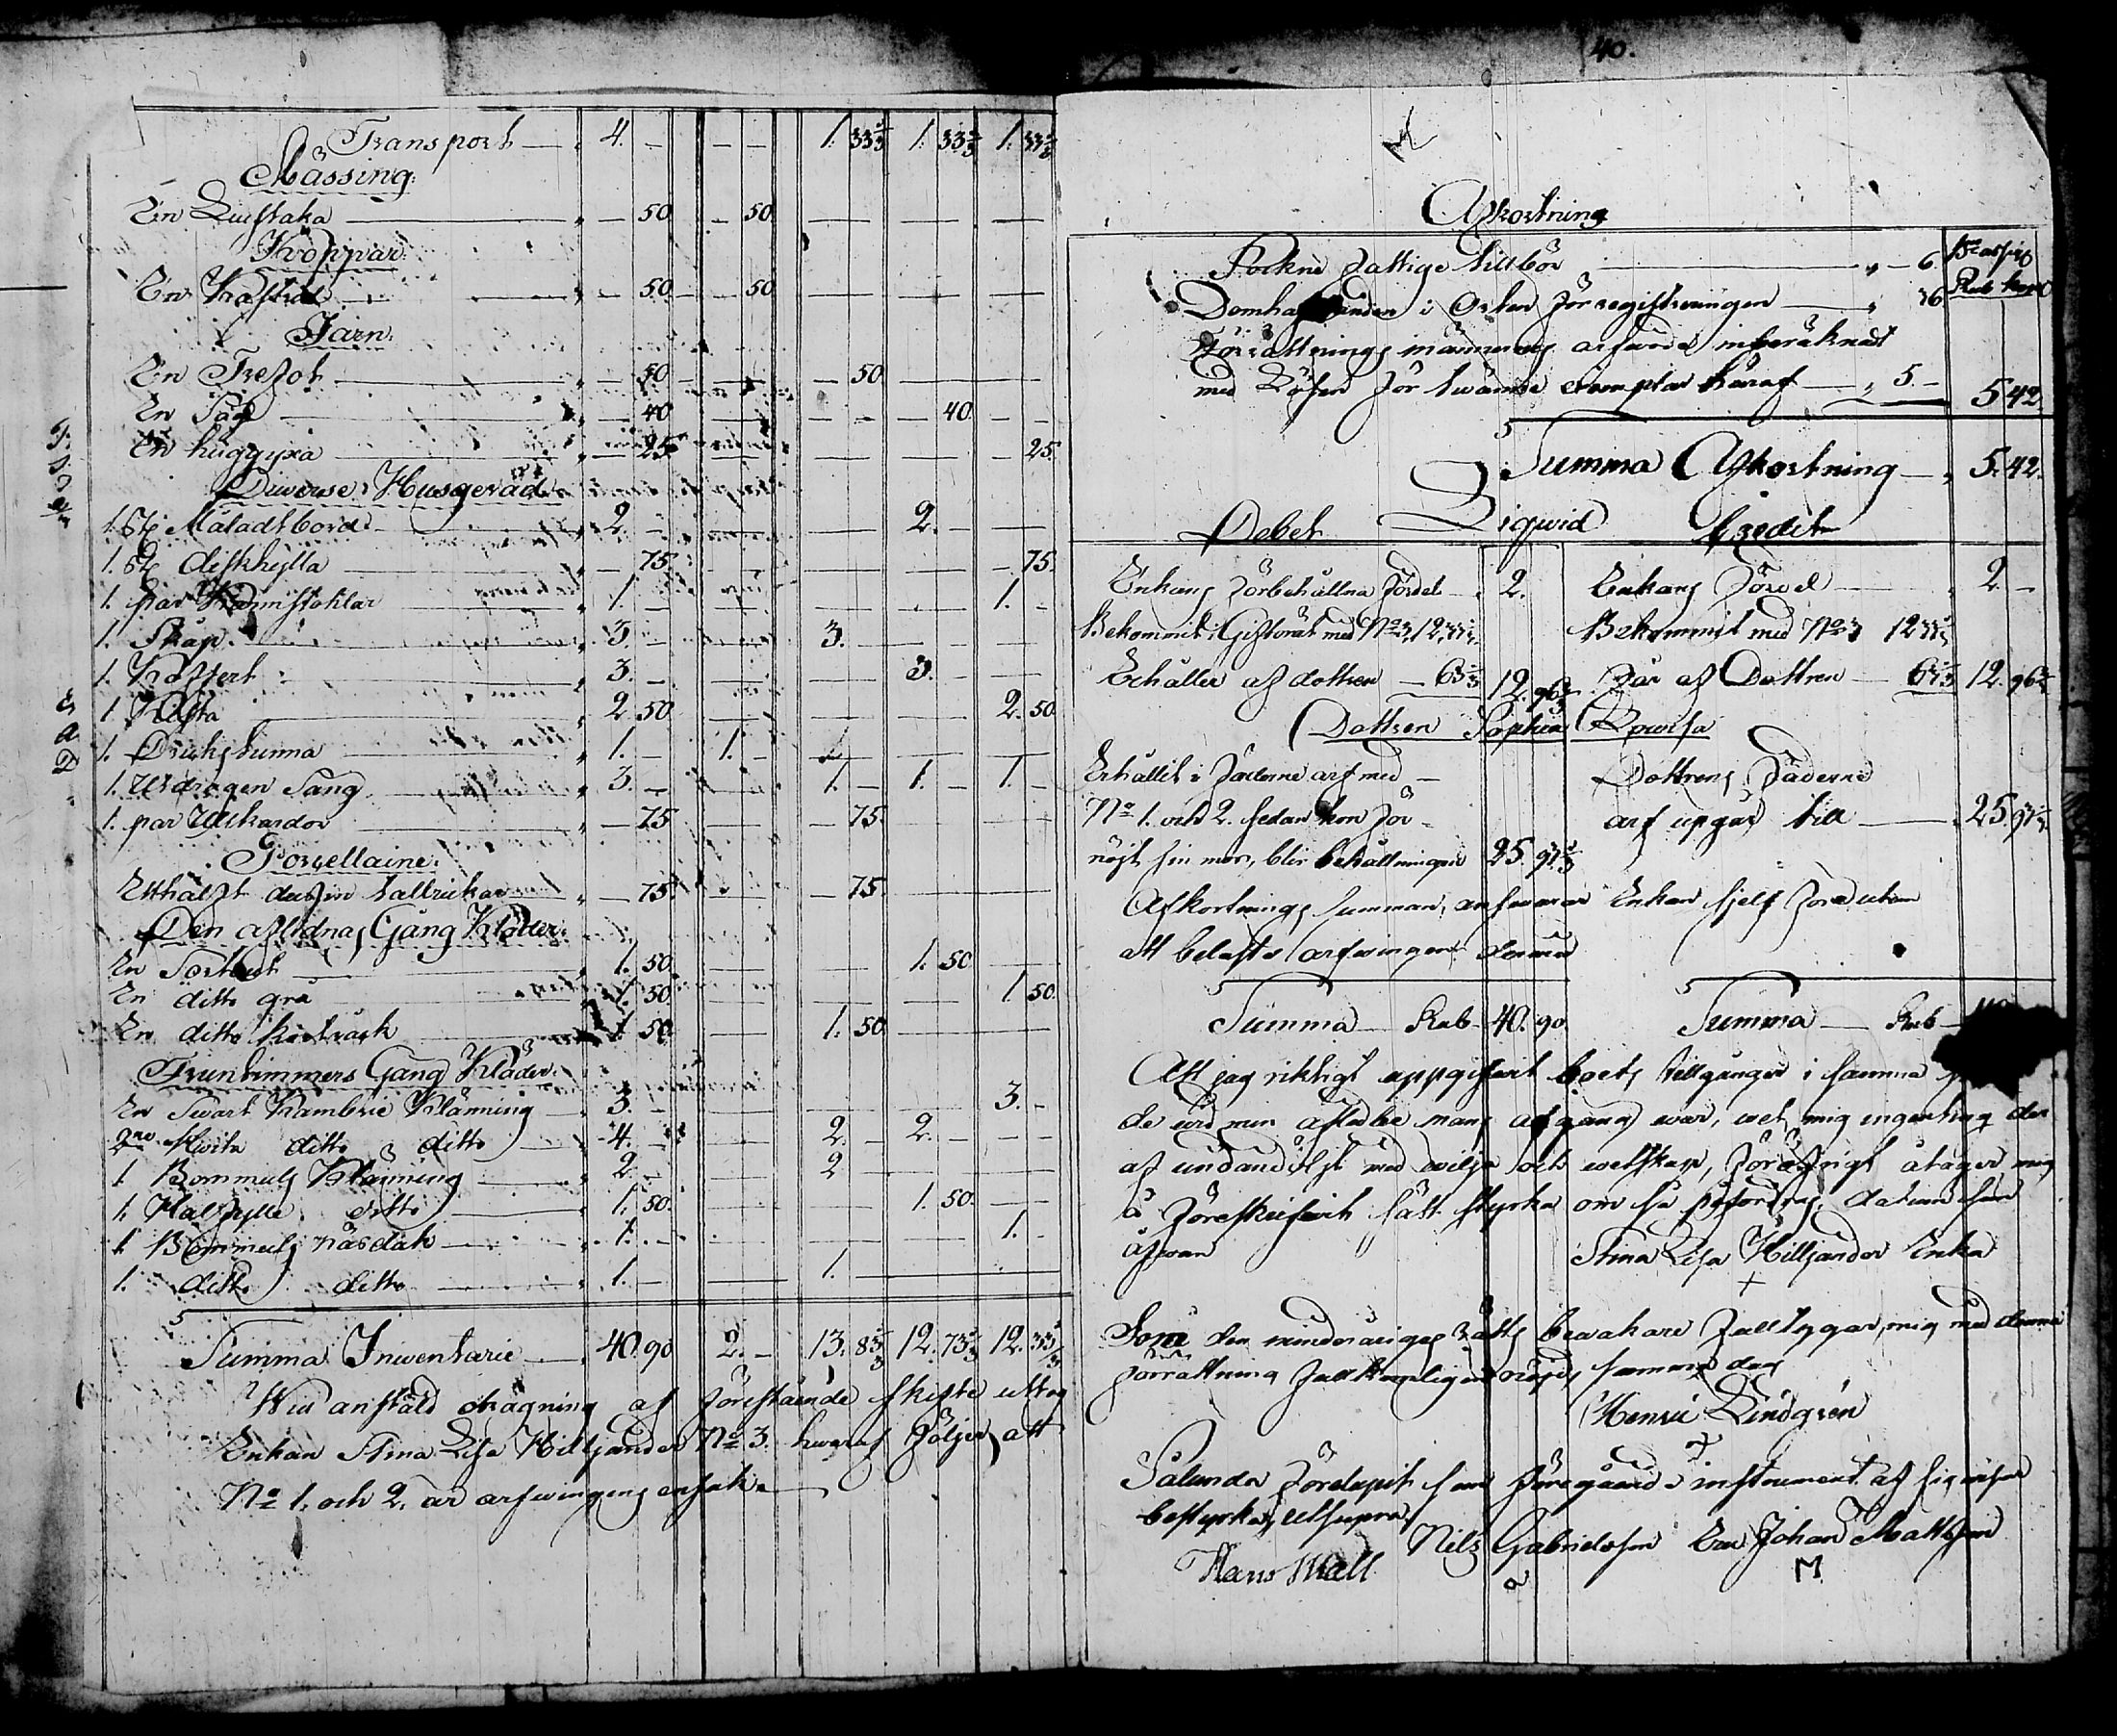 Transport 4. - - - 1. 33⅓ 1. 33⅓ 1. 33⅓
Mässing.
En Liustaka - 50 - 50.
Koppar.
En Kastrol - 50 - 50
Jarn.
En Trefot - 50 - 50
En Såg - 40 - 40.
En huggyxa - 25 - 25.
Diverse Husgeråd.
1. St. Måladt bord 2. - 2. -
1. St. diskhylla - 75. - 75.
1. par Karmstohlar 1. - 1. -
1. Skåp. 3. - 3. -
1. Koffert 3. - 3. -
1. Kista 2. 50 2. 50.
1. Drickstunna 1. - 1. -
1. Utdragen Säng 3. - 1. - 1. - 1. -
1. par Ullkardor - 75 - 75.
Porcellaine.
Etthalft dussin tallrickar - 75. - 75.
Den aflidnas Gång Kläder.
En Sortout 1. 50. 1. 50
En ditto grå 1. 50 1 50.
En ditto kortrock 1. 50. 1. 50.
Fruntimmers Gång Kläder.
En Swart Kambric Klänning 3. - 3. -
2ne Hwita ditto ditto 4. - 2. - 2. -
1 Bommuls Klänning 2. - 2
1. Halfylle ditto 1. 50. 1. 50.
1. Bommuls näsduk 1. - 1. -
1. ditto ditto 1. - 1.
Summa Inventarie 40. 90 2. - 13. 83⅓ 12. 73⅓ 12. 33⅓
Wid anstäld dragning af förestående skifte uttog
Enkan Stina Lisa Hilljander No 3. hwaraf följer, att
No 1. och 2. är arfwingens ensak.
40.
Afkortning
Sockne fattige tillbör - 6.
Domhafwanden i Orten för registreringen 36
Förrättnings männernes arfwode inberäknadt
med Lösen för twänne exemplar häraf 5 - 5 42
Summa Afkortning 5. 42.
Liqwid
Debet Credit
Enkans förbehållna fördel 2. Enkans fördel 2 -
Bekommit i Giftorätt med No 3, 12, 33⅓ Bekommit med No 3 12 33⅓
Erhåller af dottren - 63⅓ 12. 96⅔ får af Dottren 63⅓ 12. 96⅔
Dottren Sophia Lowisa
Erhållit i fäderne arf med Dottrens fäderne
No 1. och 2. sedan hon för- arf upgår till 25 93⅓
nöjt sin mor, blir behållningen 25 93⅓
Afkortnings summan, answarar Enkan sjelf före utan
att belasta arfwingen dermed
Summa Rub 40. 90. Summa Rub
Att jag riktigt uppgifwit boets tillgångar i samma
de wid min aflidne mans afgång war, wet mig ingenting der
af undandöljt med wilja och wetskap, föröfrigt åtager mig
å föreskrifwit sätt styrka om så påfordras, datum som
åfwan Stina Lisa Hilljander Enka
+
Som den minderårigas rätts bewakare falltygar, mig med denna
förrättning fullkomligen nöjd, samma dag
Henric Lindgrén
Sålunda förelupit som föregående instrument af sig wisar
bestyrka, Utsupra.
Hans Mall Nils Gabrielsson Johan Mattsson
M